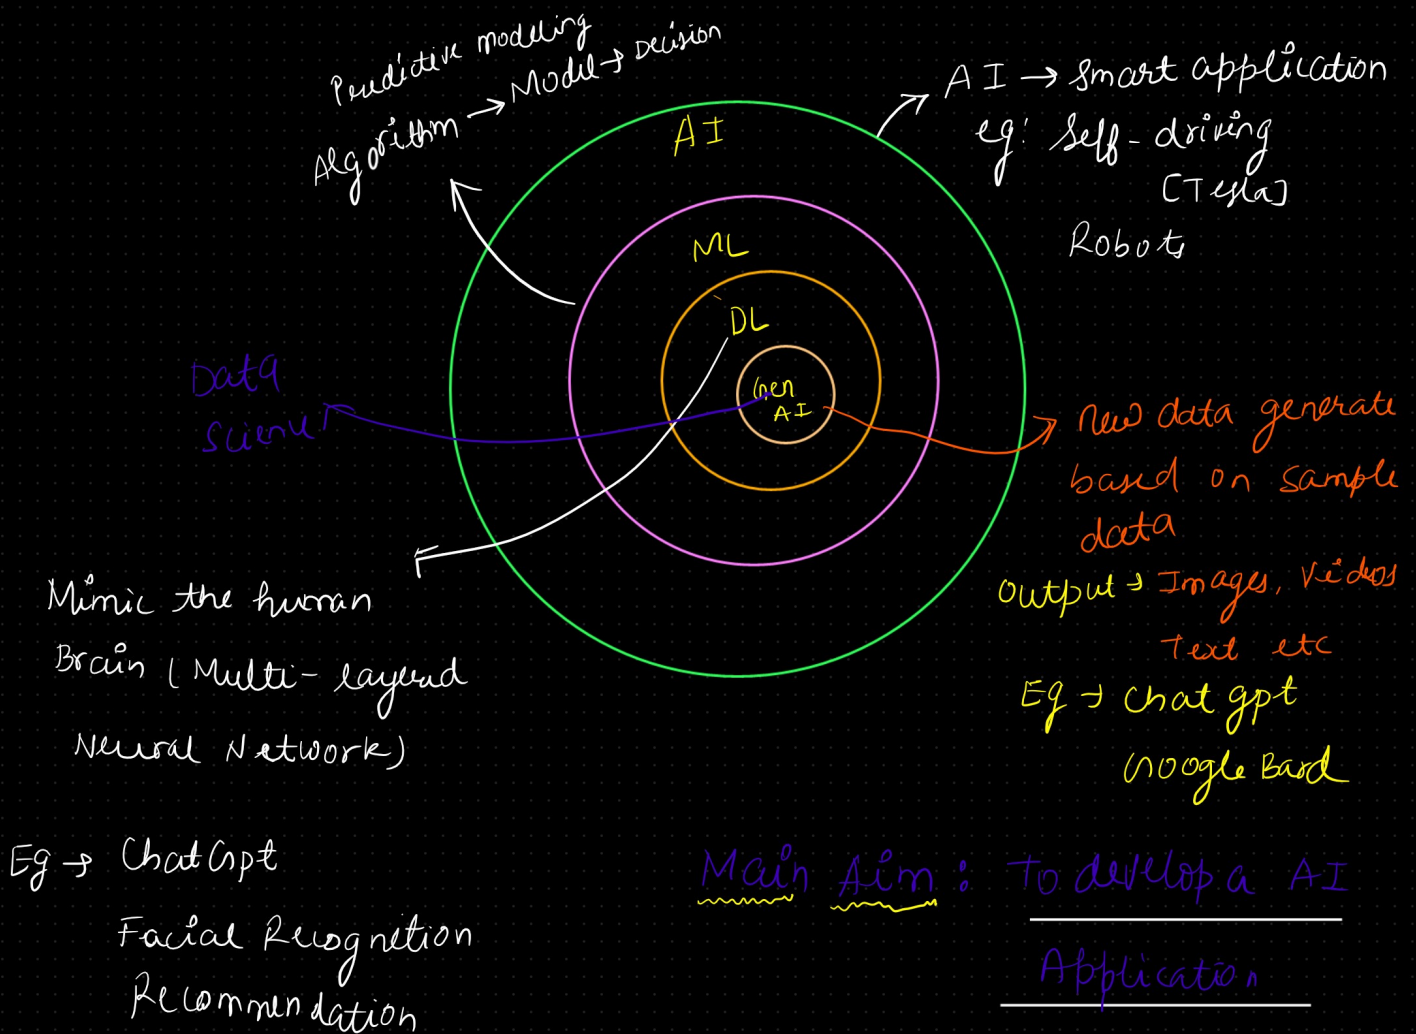 Predictive modeling
Algorithm → Model → Decision
AI → Smart application
eg: Self-driving
[Tesla]
Robots
AI
ML
DL
Gen
AI
Data
Science
New data generate
based on sample
data
Output → Images, Videos
Text etc
Eg → Chat gpt
Google Bard
Mimic the human
Brain (Multi-layered
Neural Network)
Eg → ChatGpt
Facial Recognition
Recommendation
Main Aim: To develop a AI
Application